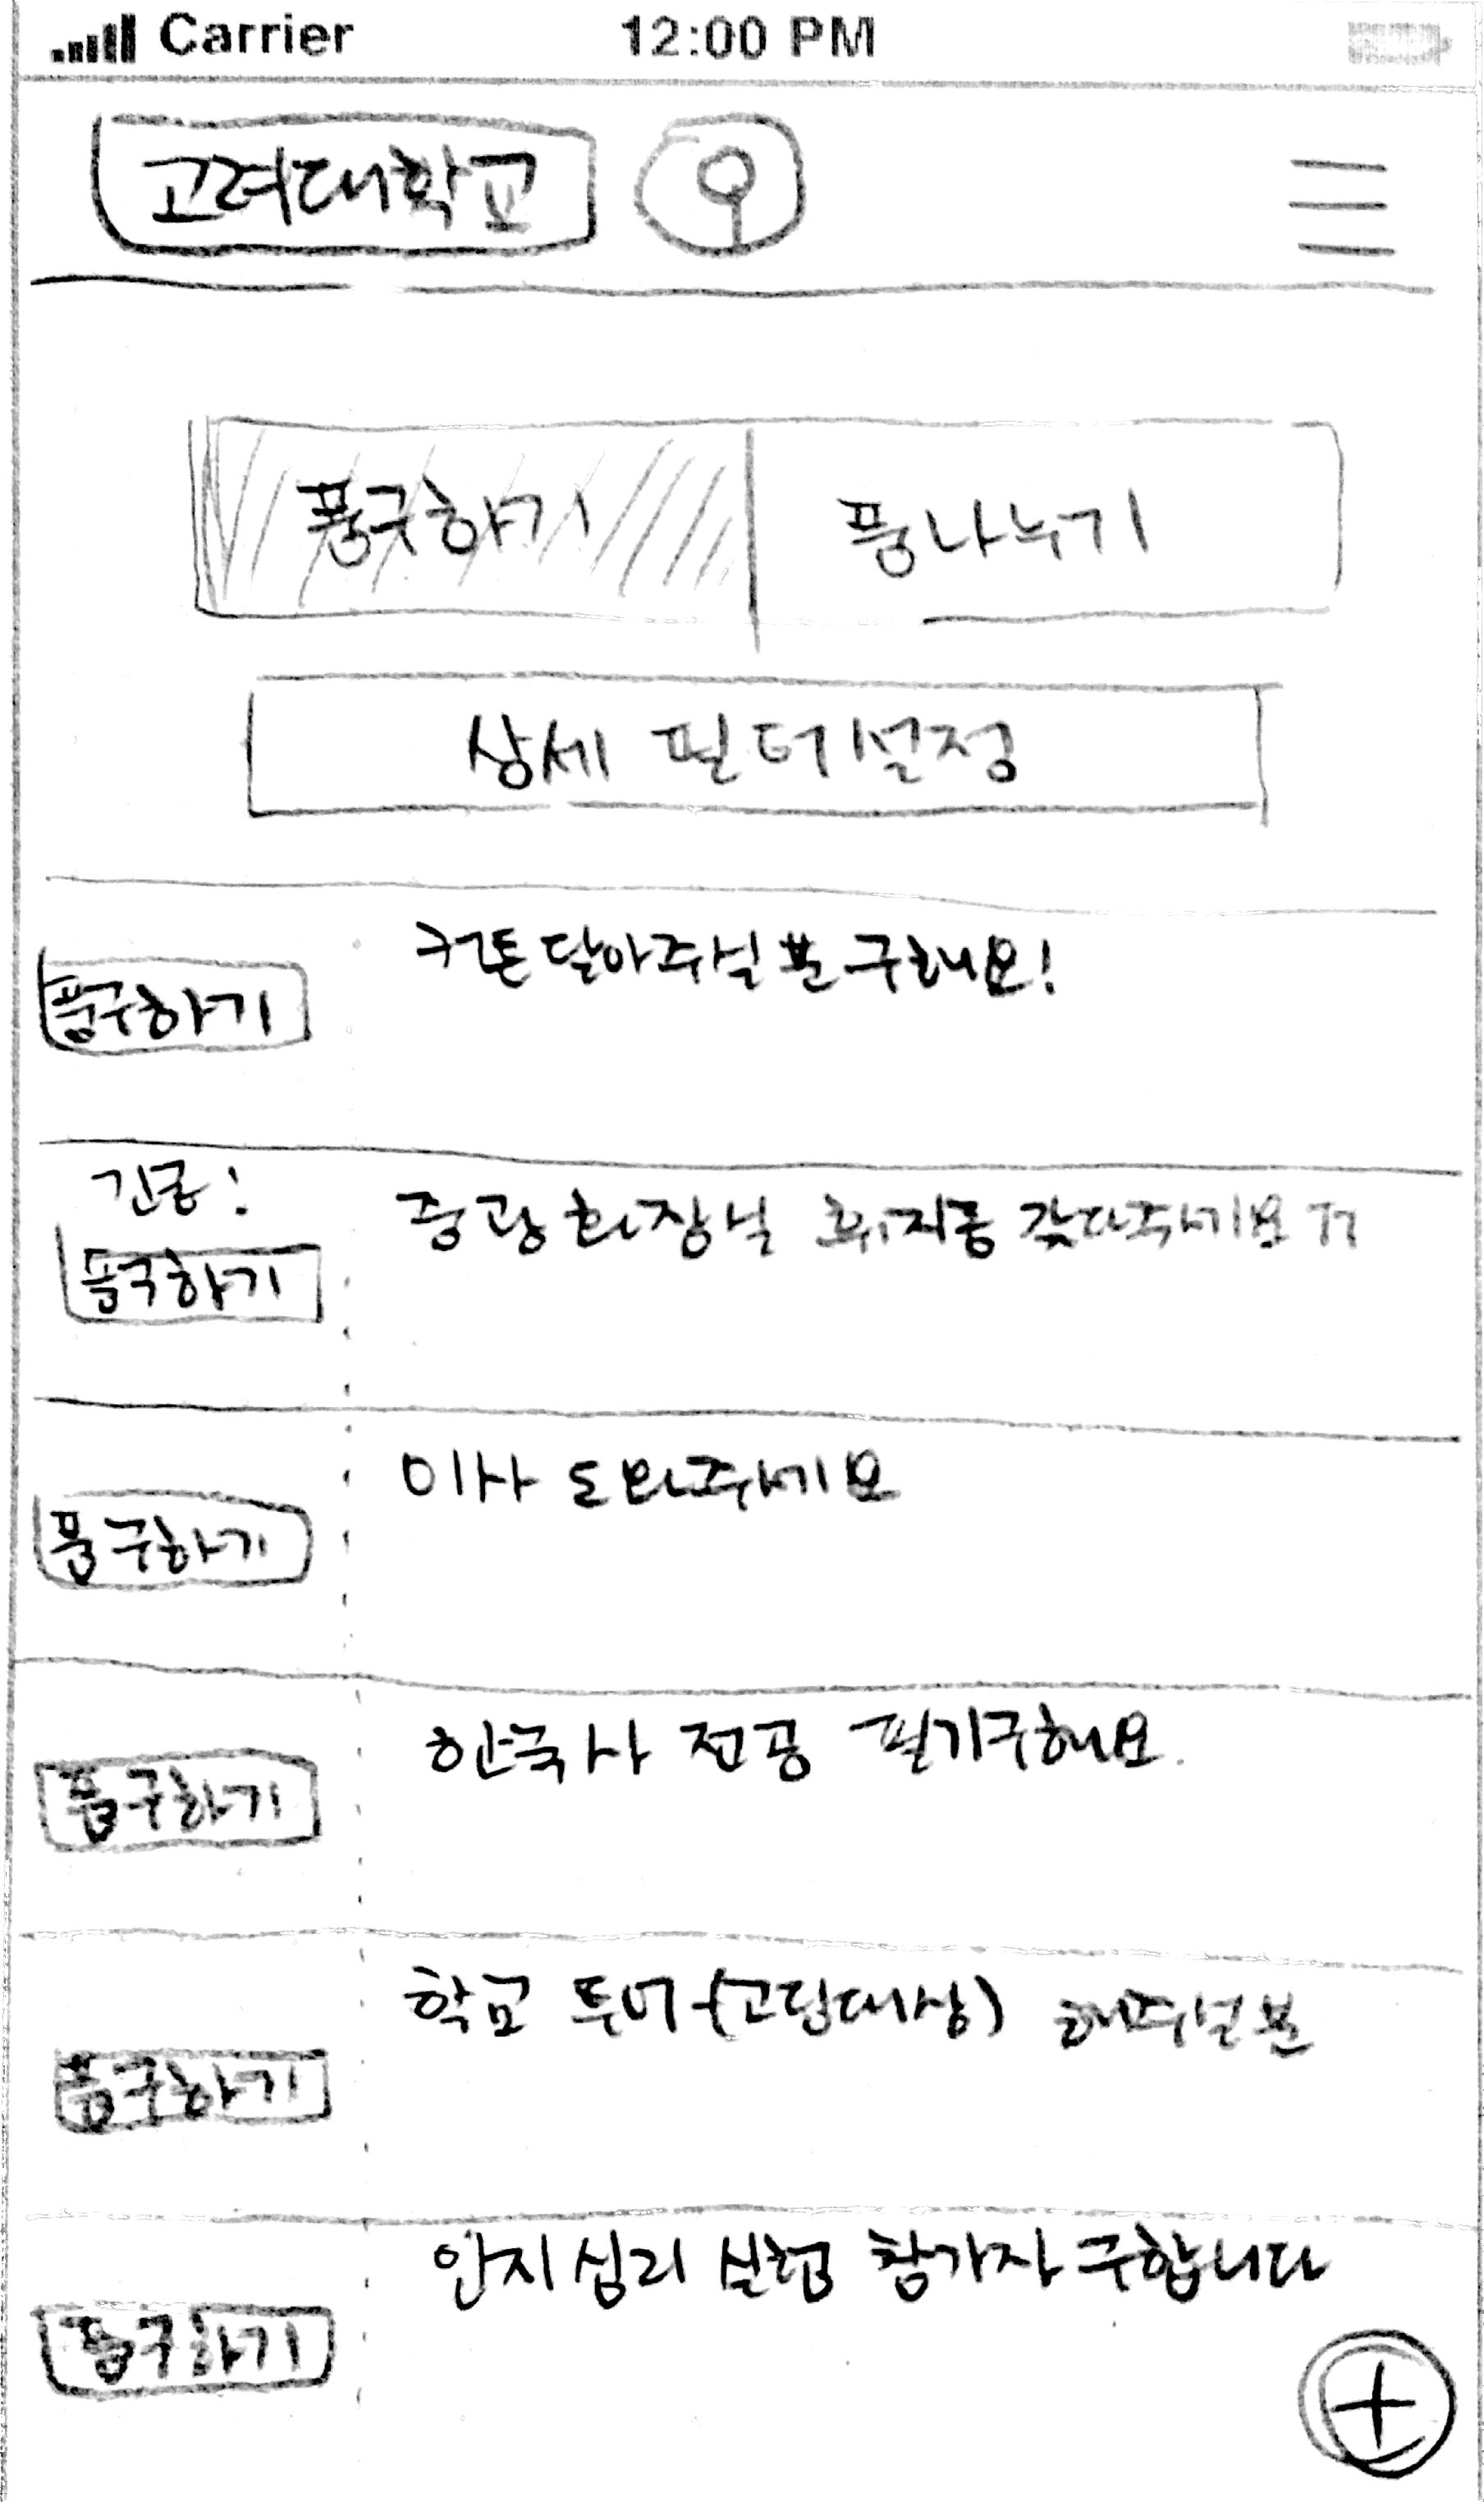 Carrier 12:00 PM
고려대학교
품구하기 품나누기
상세 필터설정
커튼달아주실 분 구해요!
품구하기
긴급!
중광 화장실 휴지좀 갖다주세요 ㅠㅠ
품구하기
이사 도와주세요
품구하기
한국사 전공 필기구해요.
품구하기
학교 투어 (고딩대상) 해주실분
품구하기
인지심리 실험 참가자 구합니다
품구하기
+